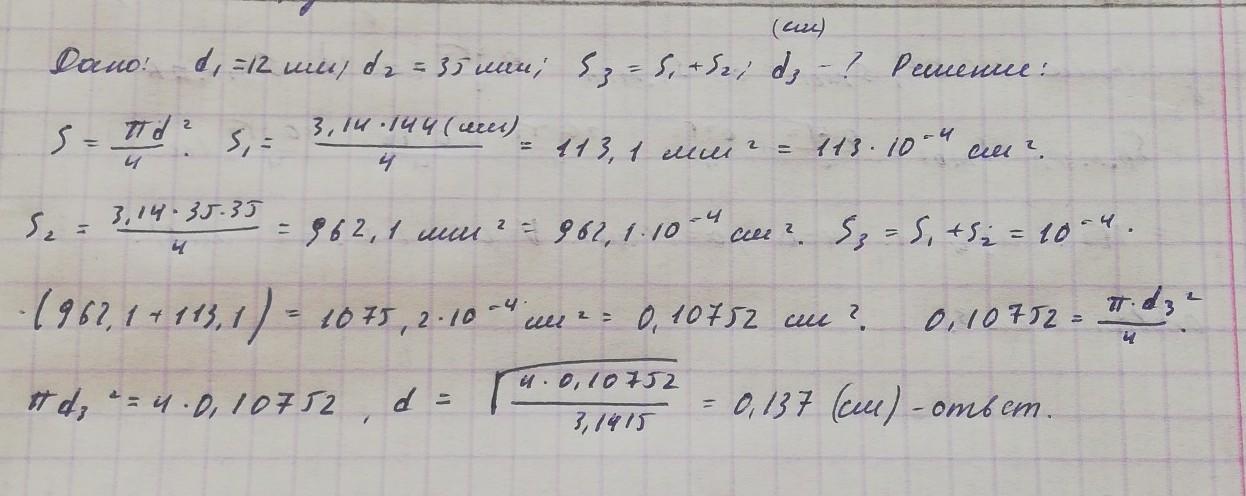 (см)
Дано: d₁ = 12 мм; d₂ = 35 мм; S₃ = S₁ + S₂; d₃ - ? Решение:
S = πd²/4. S₁ = 3,14·144(мм)/4 = 113,1 мм² = 113·10⁻⁴ см².
S₂ = 3,14·35·35/4 = 962,1 мм² = 962,1·10⁻⁴ см². S₃ = S₁ + S₂ = 10⁻⁴·
·(962,1 + 113,1) = 1075,2·10⁻⁴ см² = 0,10752 см². 0,10752 = π·d₃²/4.
πd₃² = 4·0,10752, d = √(4·0,10752/3,1415) = 0,137 (см) - ответ.